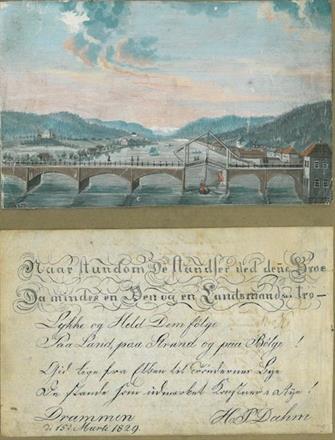 Naar stundom De standser ved denne Broe
Da mindes en Ven og en Landsmands tro –
Lykke og Held Dem følge
Paa Land, paa Strand og paa Bølge!
Gid lige fra Elben til
De stande som udmærket
Drammen
d: 15de Marts 1829.
H. P. Dahm